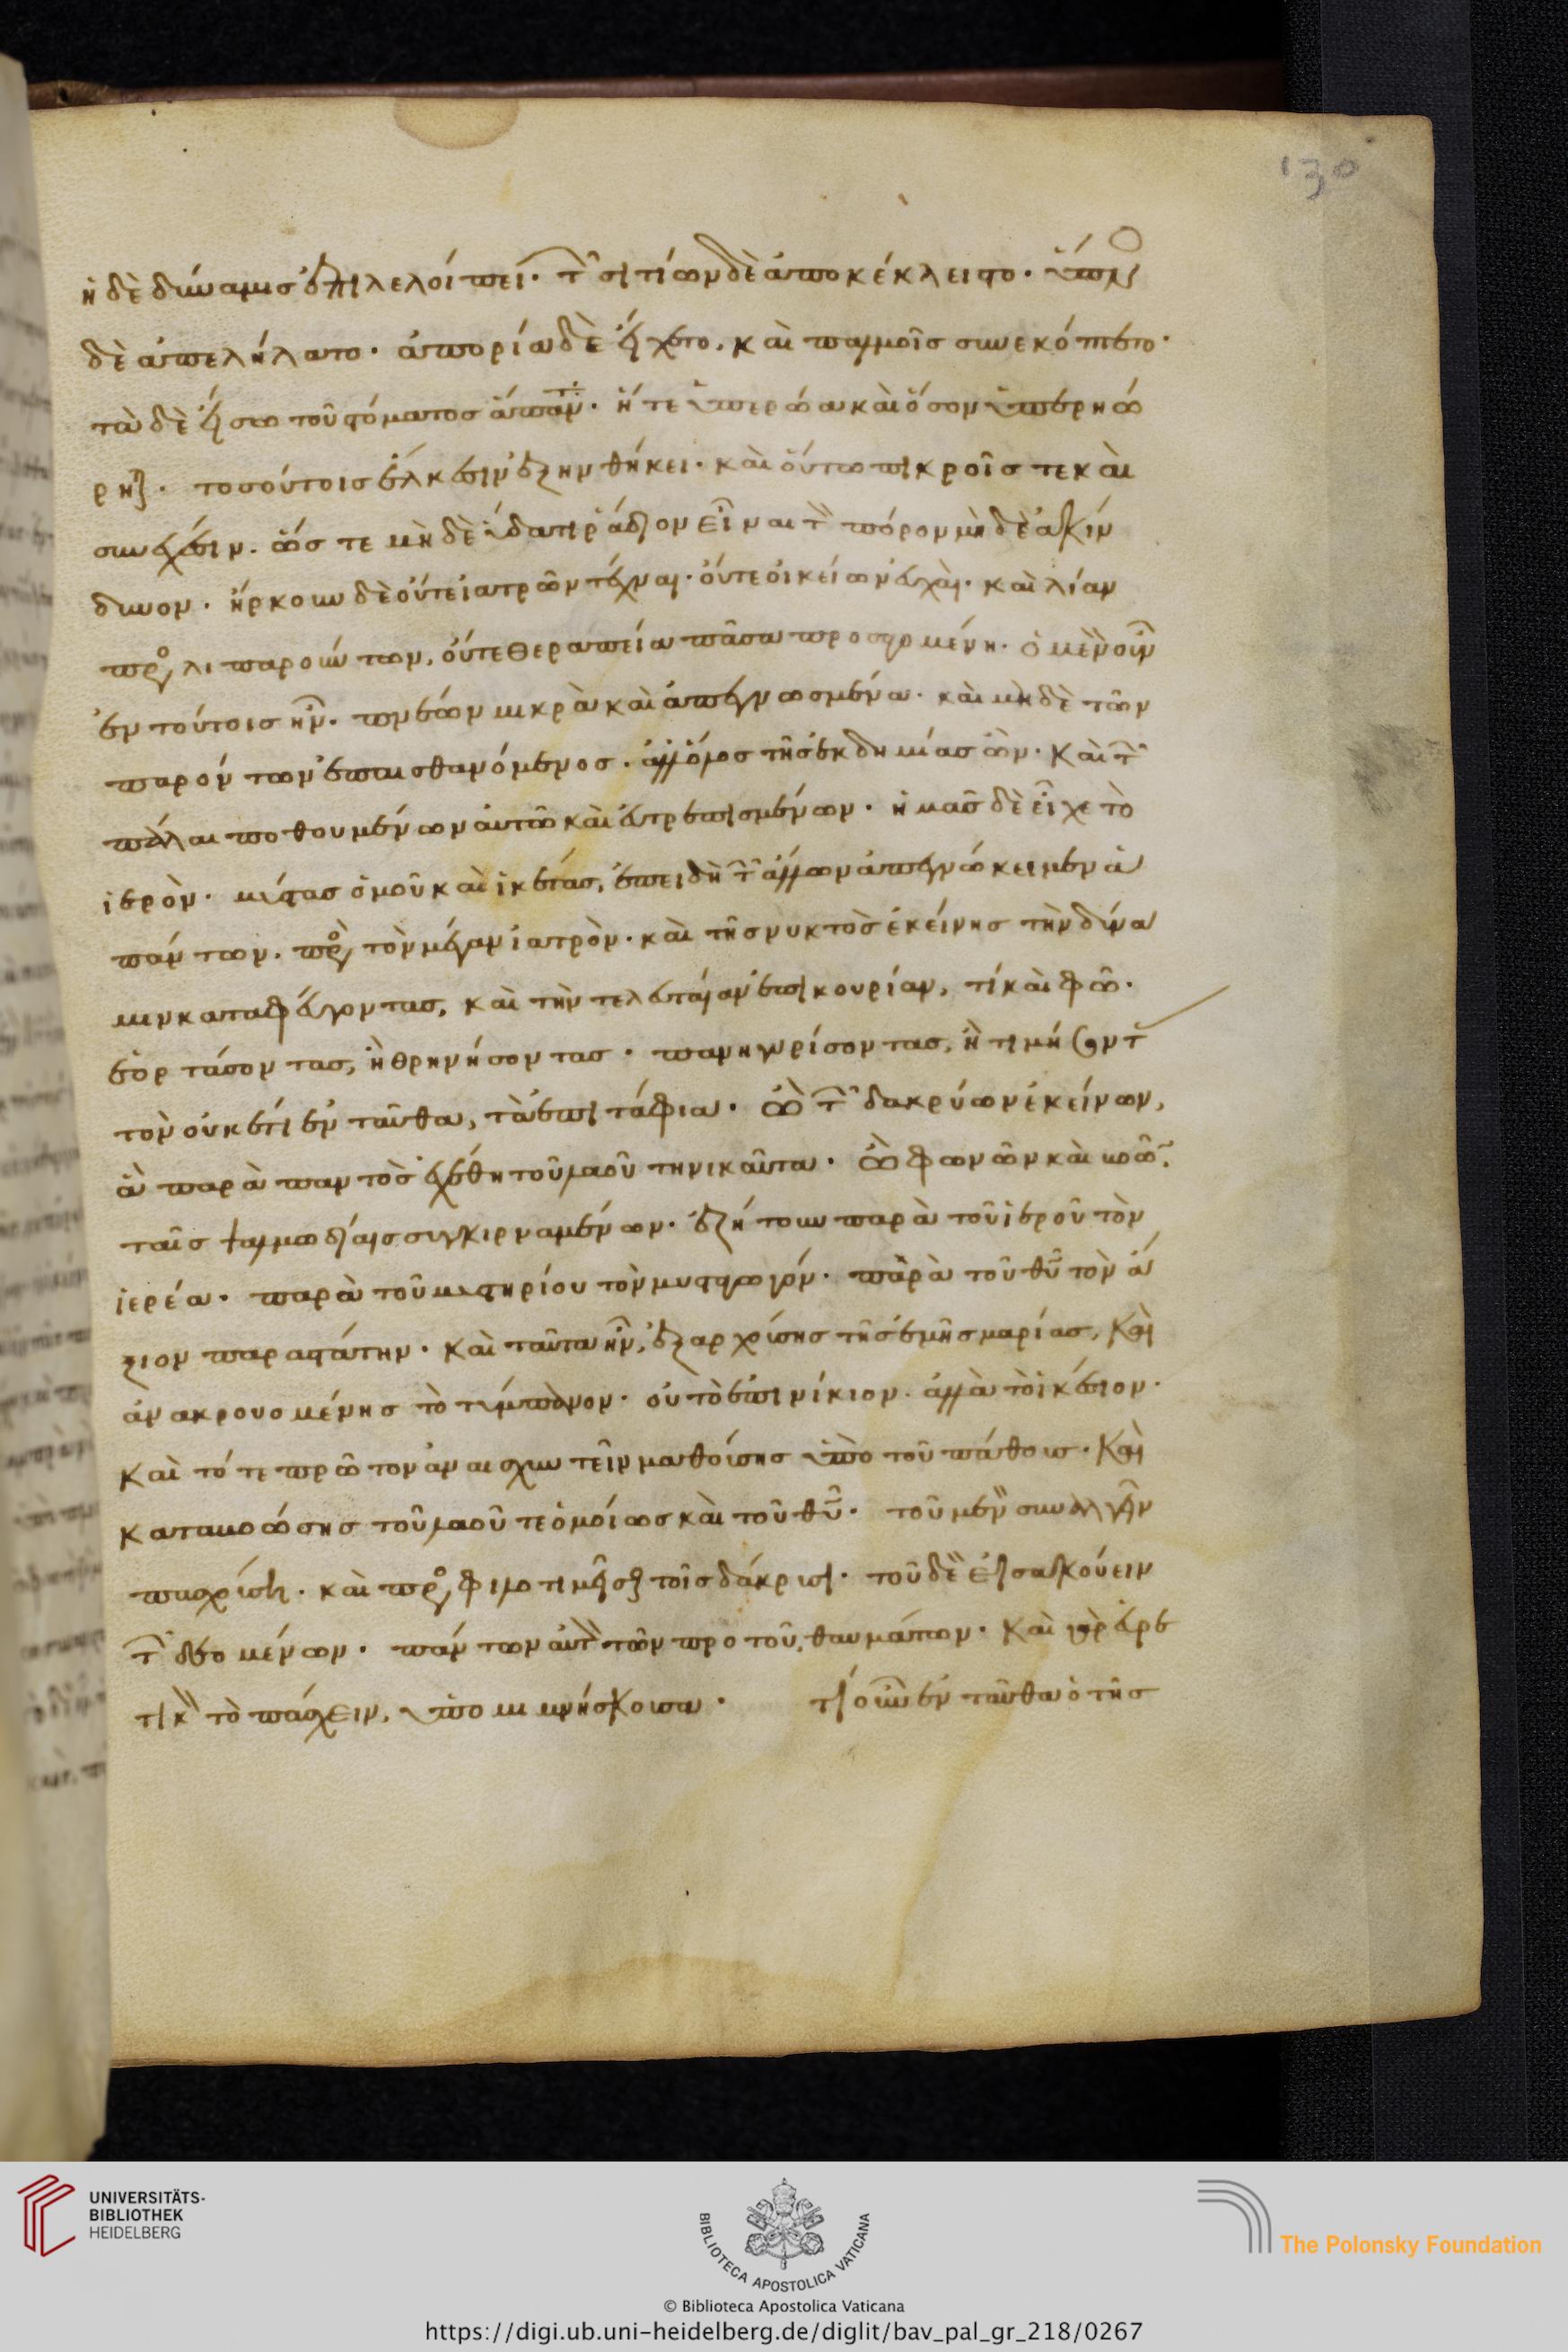 ἡ δὲ δύναμις ἐπιλελοίπει· τῶν σιτίων δὲ ἀποκέκλειστο· ὕπνος
δὲ ἀπελήλατο· ἀπορία δὲ εἴχετο, καὶ παλμοῖς συνεκόπτετο·
τὰ δὲ εἴσω τοῦ στόματος ἅπαντα· ἥ τε ὑπερώα καὶ ὅσον ὑπερηώ
ρηται· τοσούτοις ἕλκεσιν ἐξηνθήκει· καὶ οὕτω πικροῖς τε καὶ
συνεχέσιν· ὥς τε μὴ δὲ ὕδατι ῥάδιον εἶναι τὸν πόρον μὴ δὲ ἀκίν
δυνον· ἤρκουν δὲ οὔτε ἰατρῶν τέχναι· οὔτε οἰκείων εὐχαὶ· καὶ λίαν
προσλιπαρούντων, οὔτε θεραπεία πᾶσα προσαγομένη· ὁ μὲν οὖν
ἐν τούτοις ἦν· πνέων μικρὰ καὶ ἀπεγνωσμένα· καὶ μὴ δὲ τῶν
παρόντων ἐπαισθανόμενος· ἀλλ' ὅλος τῆς ἐκδημίας ὢν· καὶ τῶν
πάλαι ποθουμένων αὐτῶ καὶ εὐτρεπισμένων· ἡμᾶς δὲ εἶχε τὸ
ἱερὸν· μύστας ὁμοῦ καὶ ἱκέτας, ἐπειδὴ τῶν ἄλλων ἀπεγνώκειμεν ἁ
πάντων· πρὸς τὸν μέγαν ἰατρὸν· καὶ τῆς νυκτὸς ἐκείνης τὴν δύνα
μιν καταφεύγοντας, καὶ τὴν τελευταίαν ἐπικουρίαν, τί καὶ φῶ·
ἑορτάσοντας, ἢ θρηνήσοντας· πανηγυρίσοντας, ἢ τιμήσοντας
τὸν οὐκ ἔτι ἐνταῦθα, τὰ ἐπιτάφια· ὢ τῶν δακρύων ἐκείνων,
ἃ παρὰ παντὸς ἐχέθη τοῦ λαοῦ τηνικαῦτα· ὢ φωνῶν καὶ βοῶν·
ταῖς ψαλμωδίαις συγκιρναμένων· ἐζήτουν παρὰ τοῦ ἱεροῦ τὸν
ἱερέα· παρὰ τοῦ μυστηρίου τὸν μυσταγωγόν· παρὰ τοῦ θῦ τὸν ἄ
ξιον παραστάτην· καὶ ταῦτα ἦν, ἐξαρχούσης τῆς ἐμῆς μαρίας, καὶ
ἀνακρουομένης τὸ τύμπανον· οὐ τὸ ἐπινίκιον· ἀλλὰ τὸ ἱκέσιον·
καὶ τότε πρῶτον ἀναισχυντεῖν μαθούσης ὑπὸ τοῦ πάθους· καὶ
καταβοώσης τοῦ λαοῦ τε ὁμοίως καὶ τοῦ θῦ· τοῦ μὲν συναλγεῖν
πασχούση· καὶ προσφιλοτιμεῖσθαι τοῖς δάκρυσι· τοῦ δὲ εἰσακούειν
τῶν δεομένων· πάντων αὐτὸν τῶν πρὸ τοῦ, θαυμάτων· καὶ γὰρ εὑρε
τικὸν τὸ πάσχειν, ὑπομιμνήσκουσα· τί οὖν ἐνταῦθα ὁ τῆς
130
UNIVERSITÄTS-
BIBLIOTHEK
HEIDELBERG
BIBLIOTECA APOSTOLICA VATICANA
The Polonsky Foundation
© Biblioteca Apostolica Vaticana
https://digi.ub.uni-heidelberg.de/diglit/bav_pal_gr_218/0267